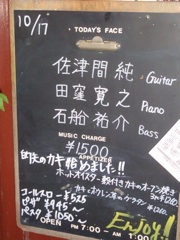 10/17
TODAY'S FACE
佐津間 純 Guitar
田窪 寛之 Piano
石舩 祐介 Bass
MUSIC CHARGE
¥1500
APPETIZER
カキ始めました!!
ホットオイスター 殻付きカキのオーブン焼き
コールスロー ¥525
ピザ ¥945〜
パスタ ¥1050〜
ENJOY!!
OPEN PM 7:00 - AM 1:00